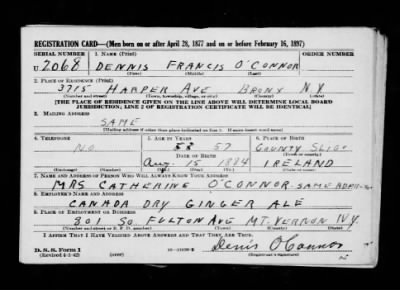 REGISTRATION CARD—(Men born on or after April 28, 1877 and on or before February 16, 1897)
SERIAL NUMBER 1. NAME (Print) ORDER NUMBER
U 2068 DENNIS FRANCIS O'CONNOR
(First) (Middle) (Last)
2. PLACE OF RESIDENCE (Print)
3715 HARPER AVE BRONX N.Y.
(Number and street) (Town, township, village, or city) (County) (State)
[THE PLACE OF RESIDENCE GIVEN ON THE LINE ABOVE WILL DETERMINE LOCAL BOARD
JURISDICTION; LINE 2 OF REGISTRATION CERTIFICATE WILL BE IDENTICAL]
3. MAILING ADDRESS
SAME
[Mailing address if other than place indicated on line 2. If same insert word same]
4. TELEPHONE 5. AGE IN YEARS 6. PLACE OF BIRTH
NO 57 COUNTY SLIGO
DATE OF BIRTH (Town or county)
Aug. 15 1884 IRELAND
7. NAME AND ADDRESS OF PERSON WHO WILL ALWAYS KNOW YOUR ADDRESS
MRS CATHERINE O'CONNOR SAME
8. EMPLOYER'S NAME AND ADDRESS
CANADA DRY GINGER ALE
9. PLACE OF EMPLOYMENT OR BUSINESS
901 SO. FULTON AVE MT. VERNON NY.
(Number and street or R. F. D. number) (Town) (County) (State)
I AFFIRM THAT I HAVE VERIFIED ABOVE ANSWERS AND THAT THEY ARE TRUE.
D. S. S. Form 1 Denis O'Connor
(Revised 4-1-42) (over) (Registrant's signature)